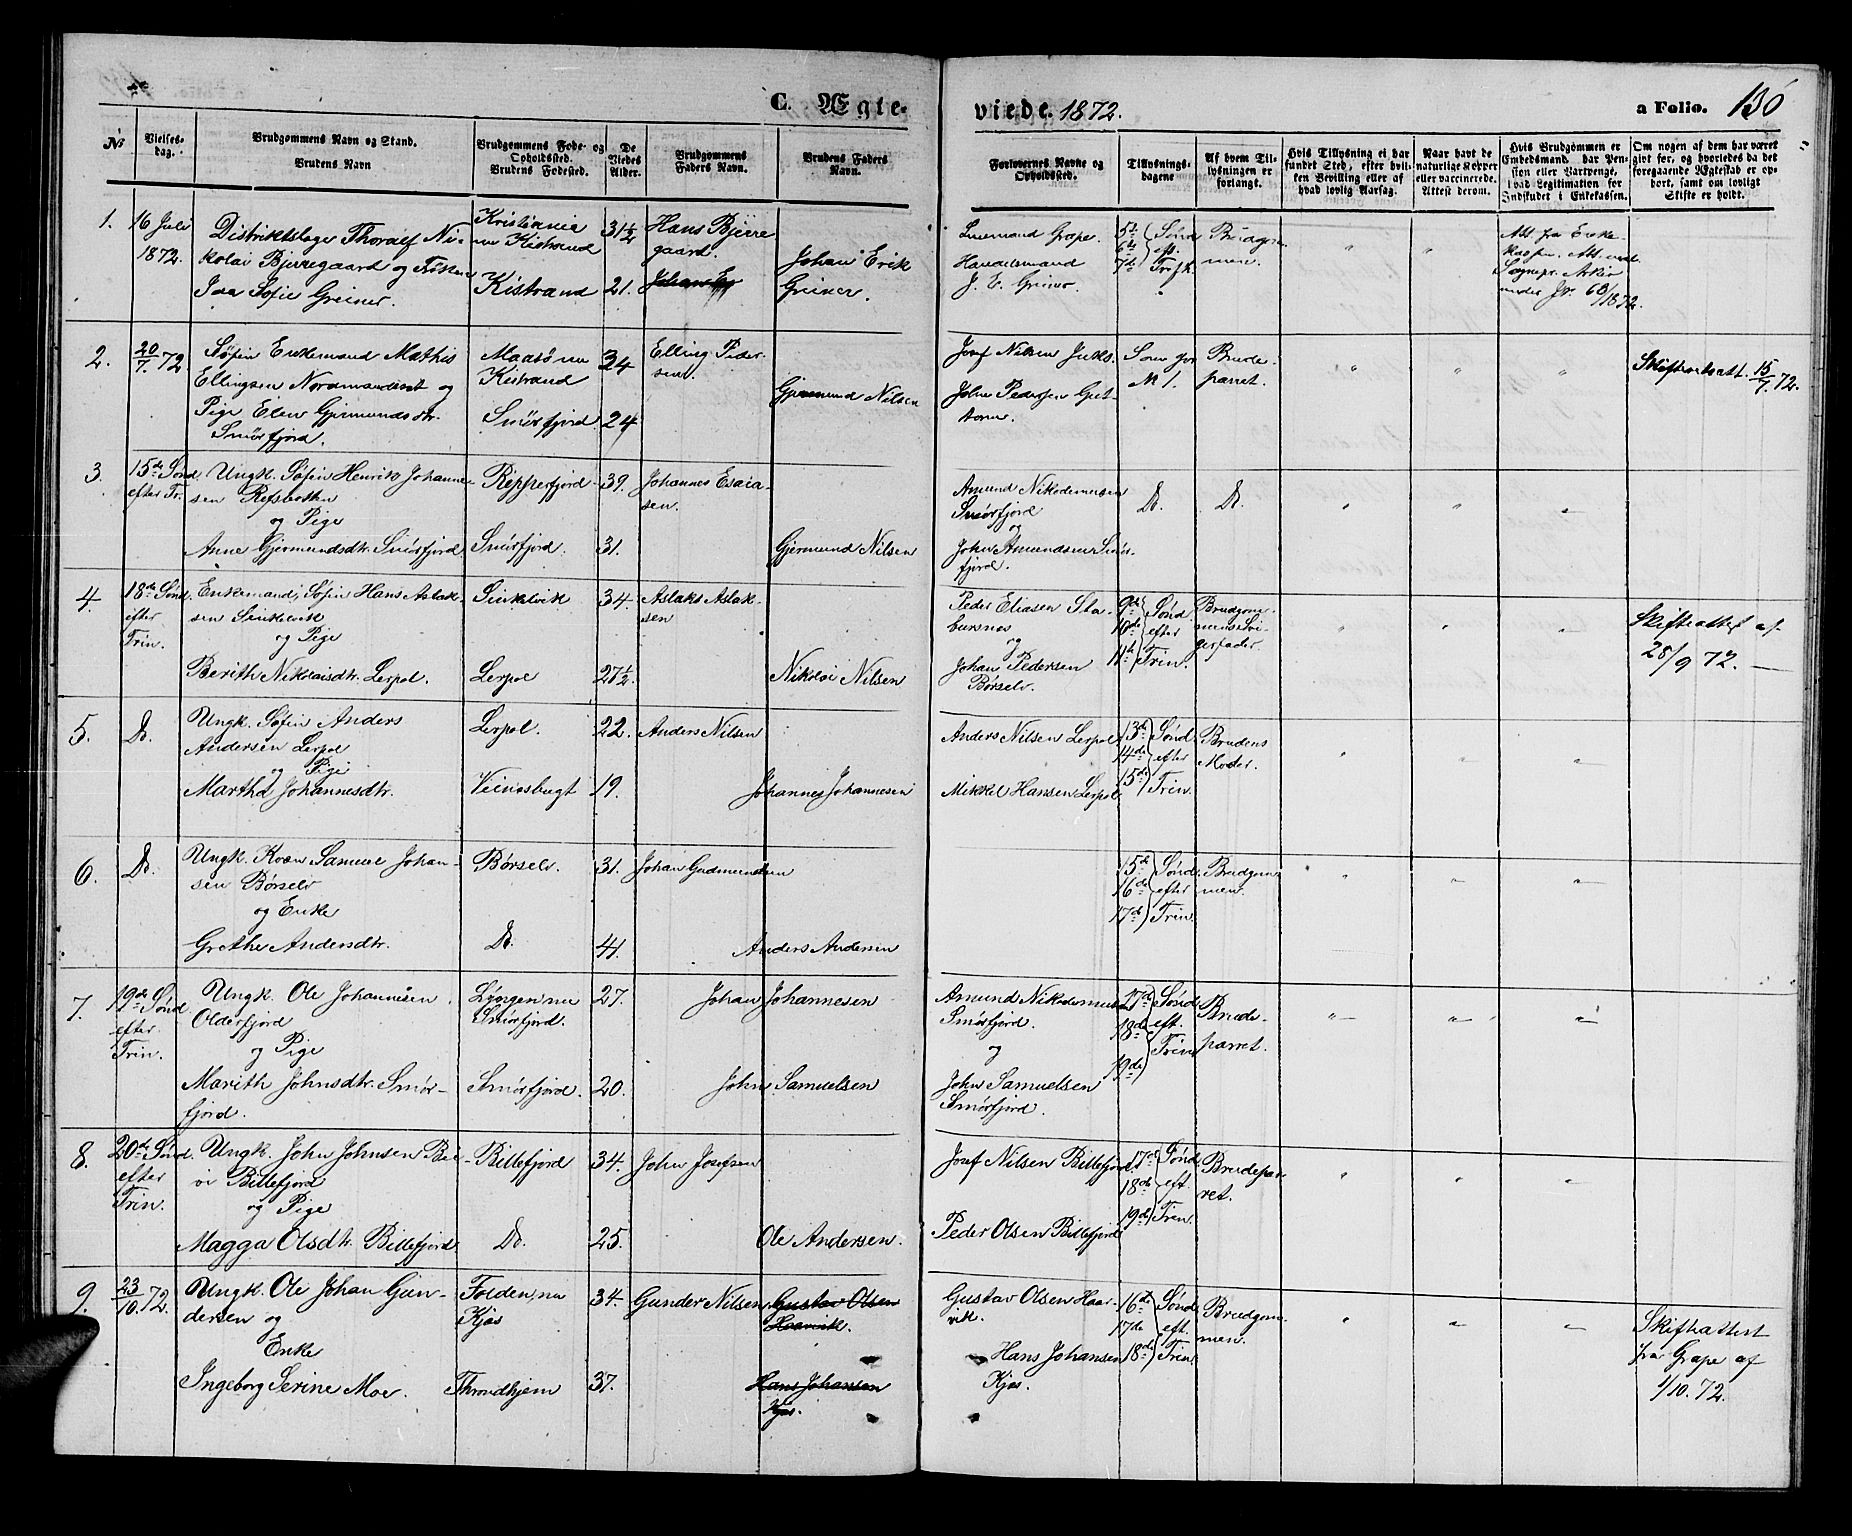 C. Ægte-
viede. 1872.
a Folio. 130
№
Vielses-
dag.
Brudgommens Navn og Stand.
Brudens Navn
Brudgommens Føde- og
Opholdssted.
Brudens Fødested.
De
Viedes
Alder.
Brudgommens
Faders Navn.
Brudens Faders
Navn.
Forlovernes Navne og
Opholdssted.
Tillysnings-
dagene
Af hvem Til-
lysningen er
forlangt.
Hvis Tillysning ei har
fundet Sted, efter hvil-
ken Bevilling eller af
hvad lovlig Aarsag.
Naar havt de
naturlige Kopper
eller vaccinerede.
Attest derom.
Hvis Brudgommen er
Embedsmand har Pen-
sion eller Vartpenge,
hvad Legitimation for
Indskudet i Enkekassen.
Om nogen af dem har været
gift før, og hvorledes da det
foregaaende Ægteskab er op-
hørt, samt om lovligt
Skifte er holdt.
1.
16 Juli
1872.
Distriktslæge Thoralf Ni-
kolai Bjerregaard og Frøken
Ida Sofie Greiner.
Kristiania
nu Kistrand
Kistrand
31½
21.
Hans Bjerre
gaard.
Johan Er
Johan Erik
Greiner.
Lensmand Grape.
Handelsmand
J. E. Greiner.
5te
6te
7de
Sønd.
eft.
Trefk.
Brudgom-
men.
Att. fra Enke-
kassen. Att. ved
Sognepr. Arkiv
under Jr. 68/1872.
2.
20/7. 72.
Søfin Enkemand Mathis
Ellingsen Nordmandset og
Pige Elen Gjermundsdtr.
Smørfjord.
Maasø nu
Kistrand
Smørfjord
34
24
Elling Peder-
sen.
Gjermund Nilsen
Josef Nilsen Juks.
John Pedersen Get-
Som for
№ 1.
Brude-
parret.
Skifteretsatt. 15/7. 72.
3.
15de Sønd.
efter Tr.
Ungk. Søfin Henrik Johanne-
sen Refsbotten
og Pige
Anne Gjermundsdtr. Smørfjord
Repperfjord
Smørfjord.
39.
31.
Johannes Esaia-
sen.
Gjermund Nilsen
Amund Nikodemusen
Smørfjord
og
John Amundsen Smør-
fjord.
Do.
Do.
4.
18de Sønd.
efter
Trin.
Enkemand, Søfin Hans Aslak-
sen Sinkelvik
og Pige
Berith Nikolaisdtr. Lerpol.
Sinkelvik
Lerpol
34.
27½
Aslak Aslak-
sen
Nikolai Nilsen
Peder Eliasen Sta-
bursnes
og
Johan Pedersen
Børselv
9de
10de
11te
Sønd
efter
Trin.
Brudgom-
mens Svi-
gerfader.
Skifteattest af
28/9 72.
5.
Do.
Ungk. Søfin Anders
Andersen Lerpol
og Pige
Martha Johannesdtr.
Lerpol.
Veinesbugt
22.
19.
Anders Nilsen
Johannes Johannesen
Anders Nilsen Lerpol
Mikkel Hansen Lerpol.
13de
14de
15de
Sønd
efter
Trin.
Brudens
Moder.
6.
Do.
Ungk. Kvæn Samuel Johan-
sen Børselv
og Enke
Grethe Andersdtr.
Børselv.
Do.
31.
41.
Johan Gudmundsen
Anders Andersen
15de
16de
17de
Sønd.
efter
Trin.
Brudgom-
men.
7.
19de Sønd.
efter
Trin.
Ungk. Ole Johannesen
Olderfjord
og Pige
Marith Johnsdtr. Smør-
fjord.
Lyngen, nu
Smørfjord.
Smørfjord.
27.
20.
Johan Johannesen
John Samuelsen
Amund Nikodemusen
Smørfjord.
og
John Samuelsen
Smørfjord.
17de
18de
19de
Sønd
eft.
Trin.
Brude-
parret.
8.
20de Sønd.
efter
Trin.
Ungk. John Johnsen
Billefjord
og Pige
Magga Olsdtr. Billefjord
Billefjord
Do.
34.
25.
John Josefsen
Ole Andersen.
Josef Nilsen Billefjord.
Peder Olsen Billefjord
17de
18de
19de
Sønd.
eft.
Trin.
Brudepar-
ret.
9.
23/10. 72.
Ungk. Ole Johan Gun-
dersen og
Enke
Ingeborg Serine Moe.
Folden, nu
Kjæs
Throndhjem
34.
37.
Gunder Nilsen
Gustav Olsen
Haarvik.
Hans Johansen
Kjæs.
Gustav Olsen Haar-
vik.
Hans Johansen
Kjæs.
16de
17de
18de
Sønd
eft.
Trin.
Brudgom-
men.
Skifteattest
fra Grape af
1/10. 72.